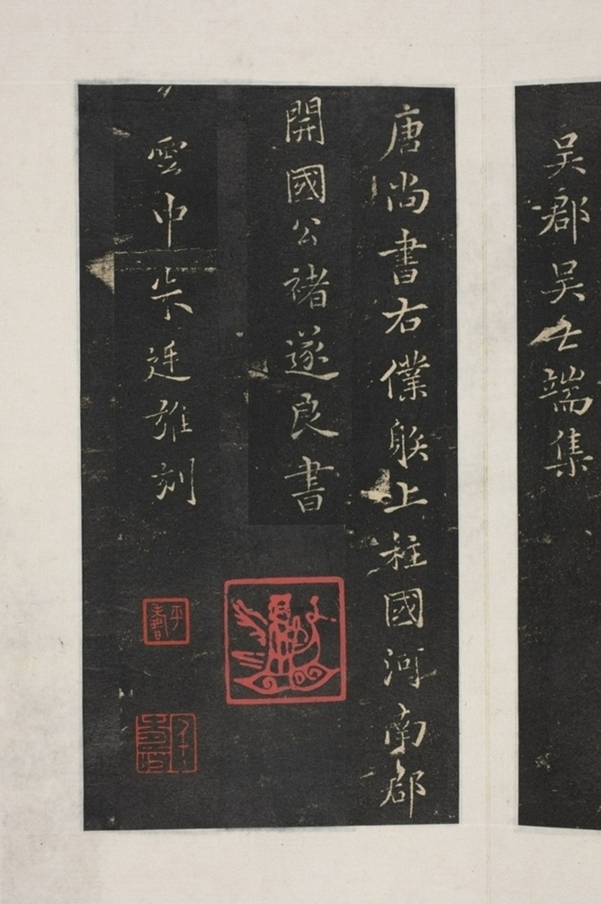 吳郡吳端集
唐尚書右僕䠶上柱國河南郡
開國公褚遂良書
雲中廷雄刻